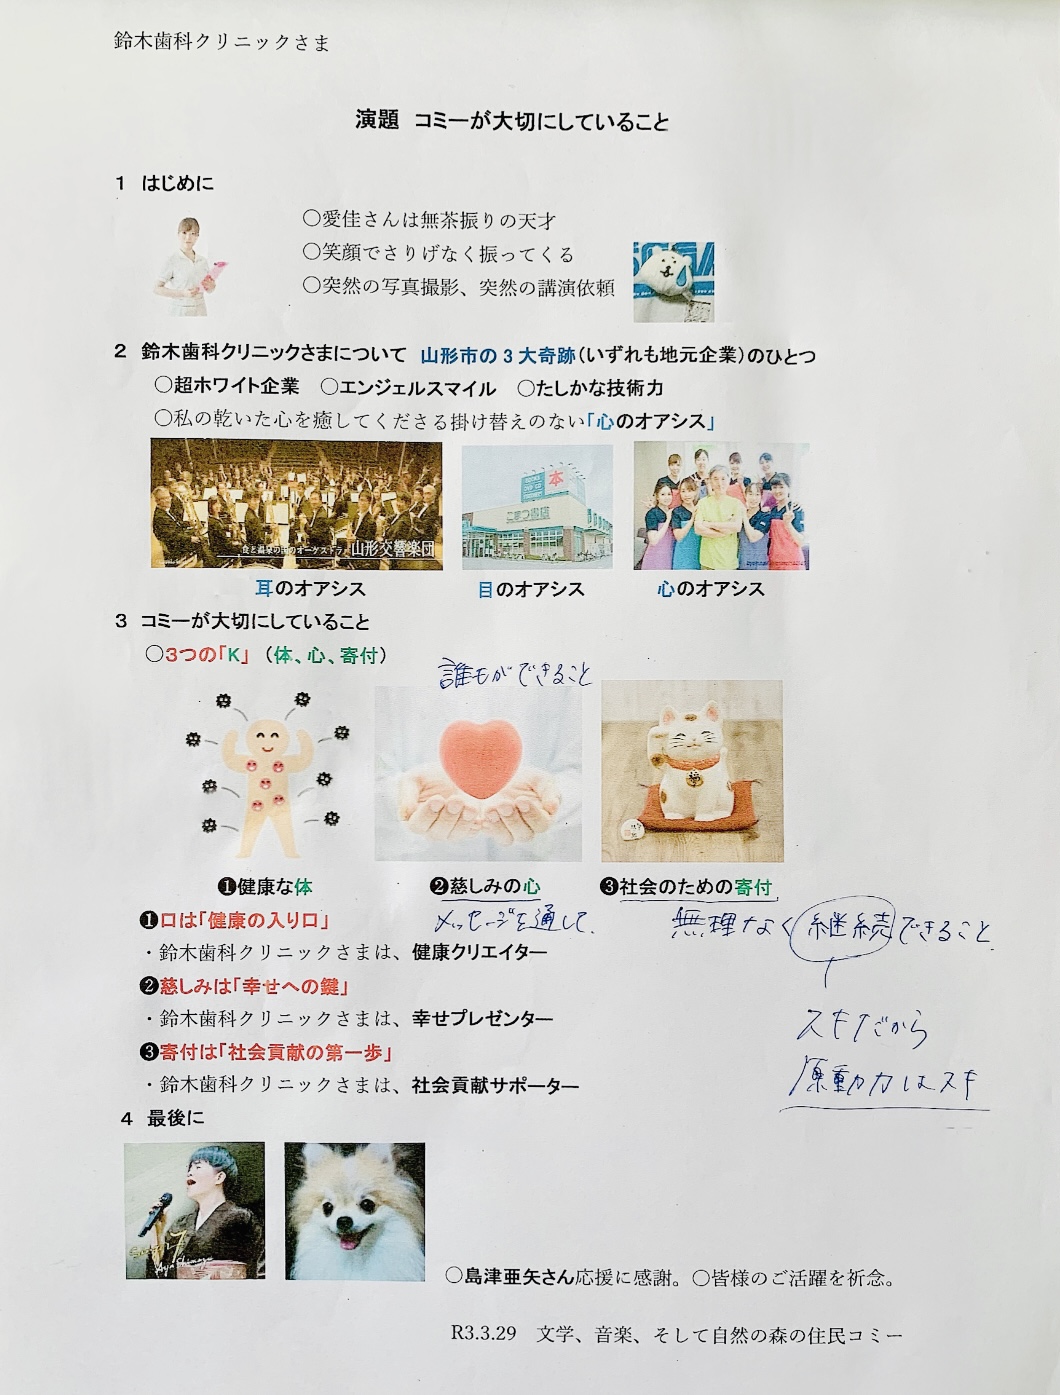 鈴木歯科クリニックさま
演題 コミーが大切にしていること
1 はじめに
○愛佳さんは無茶振りの天才
○笑顔でさりげなく振ってくる
○突然の写真撮影、突然の講演依頼
2 鈴木歯科クリニックさまについて 山形市の3大奇跡(いずれも地元企業)のひとつ
○超ホワイト企業 ○エンジェルスマイル ○たしかな技術力
○私の乾いた心を癒してくださる掛け替えのない「心のオアシス」
食と温泉の国のオーケストラ 山形交響楽団
本
こまつ書店
耳のオアシス 目のオアシス 心のオアシス
3 コミーが大切にしていること
○3つの「K」(体、心、寄付)
誰もができること
❶健康な体 ❷慈しみの心 ❸社会のための寄付
❶口は「健康の入り口」
メッセージを通して、
無理なく継続できること
・鈴木歯科クリニックさまは、健康クリエイター
❷慈しみは「幸せへの鍵」
・鈴木歯科クリニックさまは、幸せプレゼンター
スキだから
❸寄付は「社会貢献の第一歩」
・鈴木歯科クリニックさまは、社会貢献サポーター
原動力はスキ
4 最後に
○島津亜矢さん応援に感謝。○皆様のご活躍を祈念。
R3.3.29 文学、音楽、そして自然の森の住民コミー